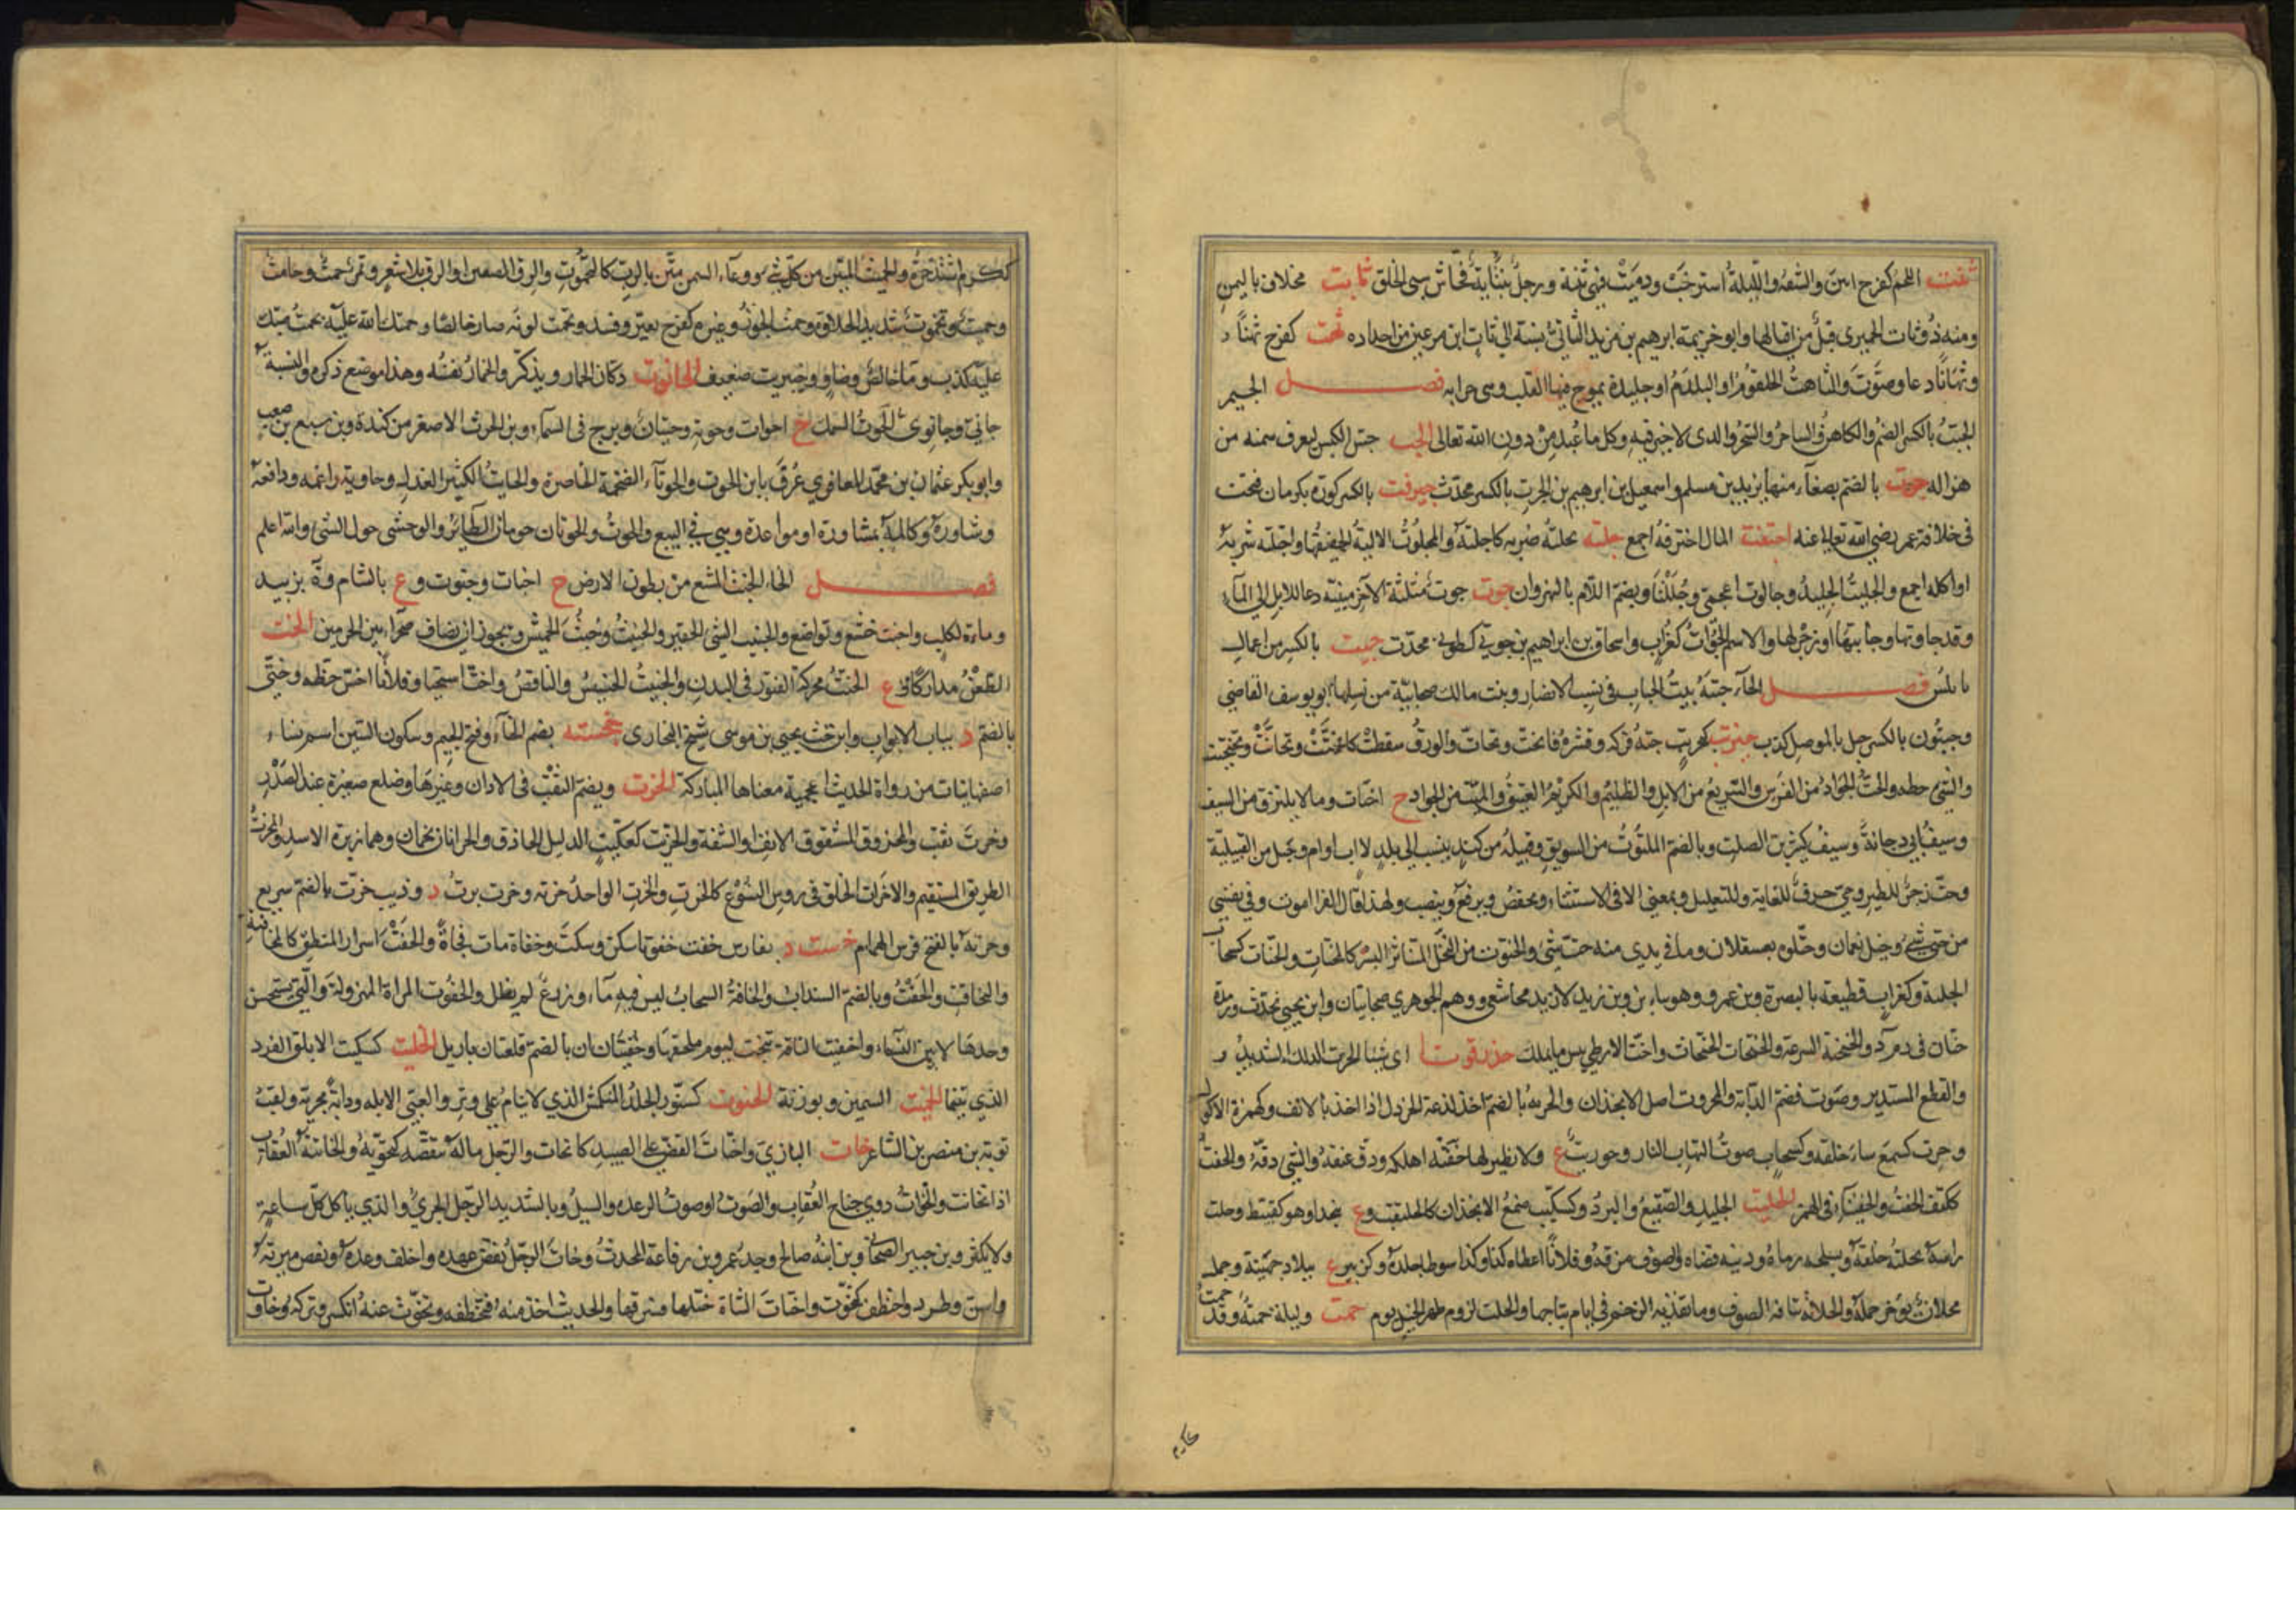 اللحم كفرح انتن والشفة واللثة استرخت ودميت فهي ثنتة ورجل ثنتاية فحاش سيئ الخلق ثابت مخلاف باليمن
ومنه ذو ثات الحميري قيل من اقيالها وابو خزيمة ابرهيم بن يزيد الثاتي نسبة الي ثات ابن رعين من اجداده ثهت كفرح ثهتا
وثهاتا دعا وصوت والثاهت الحلقوم او البلدم او جليدة يموج فيها القلب وهي جرابه فصل الجيم
الجبت بالكسر الصنم والكاهن والساحر والسحر والذي لا خير فيه وكل ما عبد من دون الله تعالى جس الكبش ليعرف سمنه من
هزاله جرت بالضم بصنعاء منها يزيد بن مسلم واسمعيل بن ابرهيم بن الجرت بالكسر محدث جيرفت بالكسر كورة بكرمان فتحت
في خلافة عمر رضي الله تعالى عنه اجتفت المال اجترفه اجمع جلته يجلته ضربه كاجلته والمجلوت الالية الخفيفها واجتلته شربه
او اكله اجمع والجليت الجليد وجالوت اعجمي وجللتا وبضم اللام بالنهروان جوت جوت مثلثة الآخر مبنية دعا للابل الي الماء
وقد جاوتها وجايتها او زجر لها والاسم الجوات كغراب واسحاق بن ابراهيم بن جوتي كطوبى محدث جيت بالكسر من اعمال
نابلس فصل الحاء حبتة بيت الحباب في نسب الانصار وبنت مالك صحابية من نسلها ابو يوسف القاضي
وحبتون بالكسر جبل بالموصل كذب حبريت كحريت حته فركه وقشره فانحت وتحات والورق سقطت كانحتت وتحاتت وتحتحتت
والشيء حطه والحت الجواد من الفرس والسريع من الابل والظليم والكريم العتيق والميت من الجراد ح احتات وما لا يلتزق من السيف
وسيف ابي دجانة وسيف كثير بن الصلت وبالضم الملتوت من السويق وقبيلة من كندة ينسب الي بلد لا اب او ام وجبل من القبلية
وحت زجر للطير وحتى حرف للغاية وللتعليل وبمعنى الا في الاستثناء ويخفض ويرفع وينصب ولهذا قال الفرا اموت وفي نفسي
من حتى شيء وجبل نعمان وحتاوة بعسقلان وما في يدي منه حت شيء والحتوت من النخل المتناثر البسر كالمحتات والحتات كسحاب
الجلبة وكغراب قطيعة بالبصرة وبن عمرو وهو بابن وبن زيد لا يزيد مجاشعي ووهم الجوهري صحابيان وابن يحيى محدث ورملة
حتان في دم ر د والحتحتة السرعة والحتحات الحثحاث واحت الارطي يبس ما يملك حذرقوتا اي شيئا الحرت الدلك الشديد
والقطع المستدير وصوت قضم الدابة والمحروت اصل الانجذان والحرتة بالضم اخذ لذعة الخردل اذا اخذ بالانف وكهمزة الاكول
وحرت كسمع ساء خلقه وكسحاب صوت التهاب النار وحوريت ع ولا نظير لها حفته اهلكه ودق عنقه والشيء دقه والحفت
ككتف الحفث والحفيتأ في الهمز الحلتيت الجليد والصقيع والبرد وكسكيت صمغ الانجذان كالحلتيت وع بنجد او هو كقبيط وحلت
راسه يحلته حلقه وبسلحه رماه ودينه قضاه والصوف مزقه وفلانا اعطاه كذا وكذا سوطا جلده وكزبير ع ببلاد جهينة وجمل
محلات يؤخر حمله والحلاتة نتافة الصوف وما تقذفه الرحم في ايام نتاجها والحلت لزوم ظهر الخيل يوم حمت وليلة حمتة وقد حمت
ككرم اشتد حره والحميت المتين من كل شيء ووعاء السمن متن بالرب كالتحموت والزق الصغير او الزق بلا شعر وتمر حمت وحامت
وحميت وتحموت شديد الحلاوة وحمت الجوز وغيره كفرح تغير وفسد وتحمت لونه صار خالصا وحمتك الله عليه يحمتك صبك
عليه كذب وماخالص وضاو وحبريت ضعيف الحانوت دكان الخمار ويذكر والخمار نفسه وهذا موضع ذكره والنسبة
حاني وحانوي الحوت السمك ح احوات وحوتة وحيتان وبرج في السماء وبن الحرث الاصغر من كندة وبن سبع بن صعب
وابو بكر عثمان بن محمد المعافري عرف بابن الحوت والحوتاء الضخمة الخاصرة والحايت الكثير العذل وحاوته راغمه ودافعه
وشاوره وكالمه بمشاورة او مواعدة وهي في البيع والحوت والحوتان حومان الطائر والوحشي حول الشيء والله اعلم
فصل الخاء الخبت المتسع من بطون الارض ح اخبات وخبوت وع بالشام وة بزبيد
وماءة لكلب واخبت خشع وتواضع والخبيت الشيء الحقير والخبيث وخبت الجميش ويجوز ان يضاف صحراء بين الحرمين الخت
الطعن مداركا وع الختت محركة الفتور في البدن والختيت الخسيس والناقص واختت استحيا وفلانا اخس حظه وختى
بالضم د بباب الابواب وابن خت يحيى بن موسى شيخ البخاري خجسته بضم الخاء وفتح الجيم وسكون السين اسم نساء
اصفهانيات من رواة الحديث اعجمية معناها المباركة الخرت ويضم الثقب في الاذان وغيرها وضلع صغيرة عند الصدر
وخرت ثقب والمخروت المشقوق الانف او الشفة والخريت كسكيت الدليل الحاذق والخراتان نجمان وهما زبرة الاسد والمخرت
الطريق المستقيم والاخرات الحلق في روس النسوع كالخرت والخرت الواحد خرتة وخرت برت د وذيب خرت بالضم سريع
وخرتة بالفتح فرس الهمام خست د بفارس خفت خفوتا سكن وسكت وخفاتا مات فجاة والخفت اسرار المنطق كالمخافتة
والتخافت والخفت وبالضم السنداب والخافت السحاب ليس فيه ماء وزرع لم يطل والخفوت المراة المهزولة والتي تستحسن
وحدها لا بين النساء واخفتت الناقة نتجت ليوم ملقحها وخفتيان بالضم قلعتان باربل الخليت كسكيت الابلق الفرد
الذي بتيما الخميت السمين وبوزنه الخنوت كسنور الجلد المنكمش الذي لا ينام علي وتر والعيي الابله ودابة بحرية ولقب
توبة بن مضرس الشاعر خات البازي واختات انقض علي الصيد كانخات والرجل ماله تنقصه كتخوته والخائتة العقاب
اذا انخاتت والخوات دوي جناح العقاب والصوت او صوت الرعد والسيل وبالتشديد الرجل الجري والذي ياكل كل ساعة
ولا يكثر وبن جبير الصحابي وبن ابنه صالح وجد عمرو بن رفاعة المحدث وخات الرجل نقض عهده واخلف وعده ونقص ميرته
واسن وطرد واختطف كتخوت واختات الشاة ختلها فسرقها والحديث اخذ منه فتخطفه وتخوت عنه انكسر وتركه وخاوت